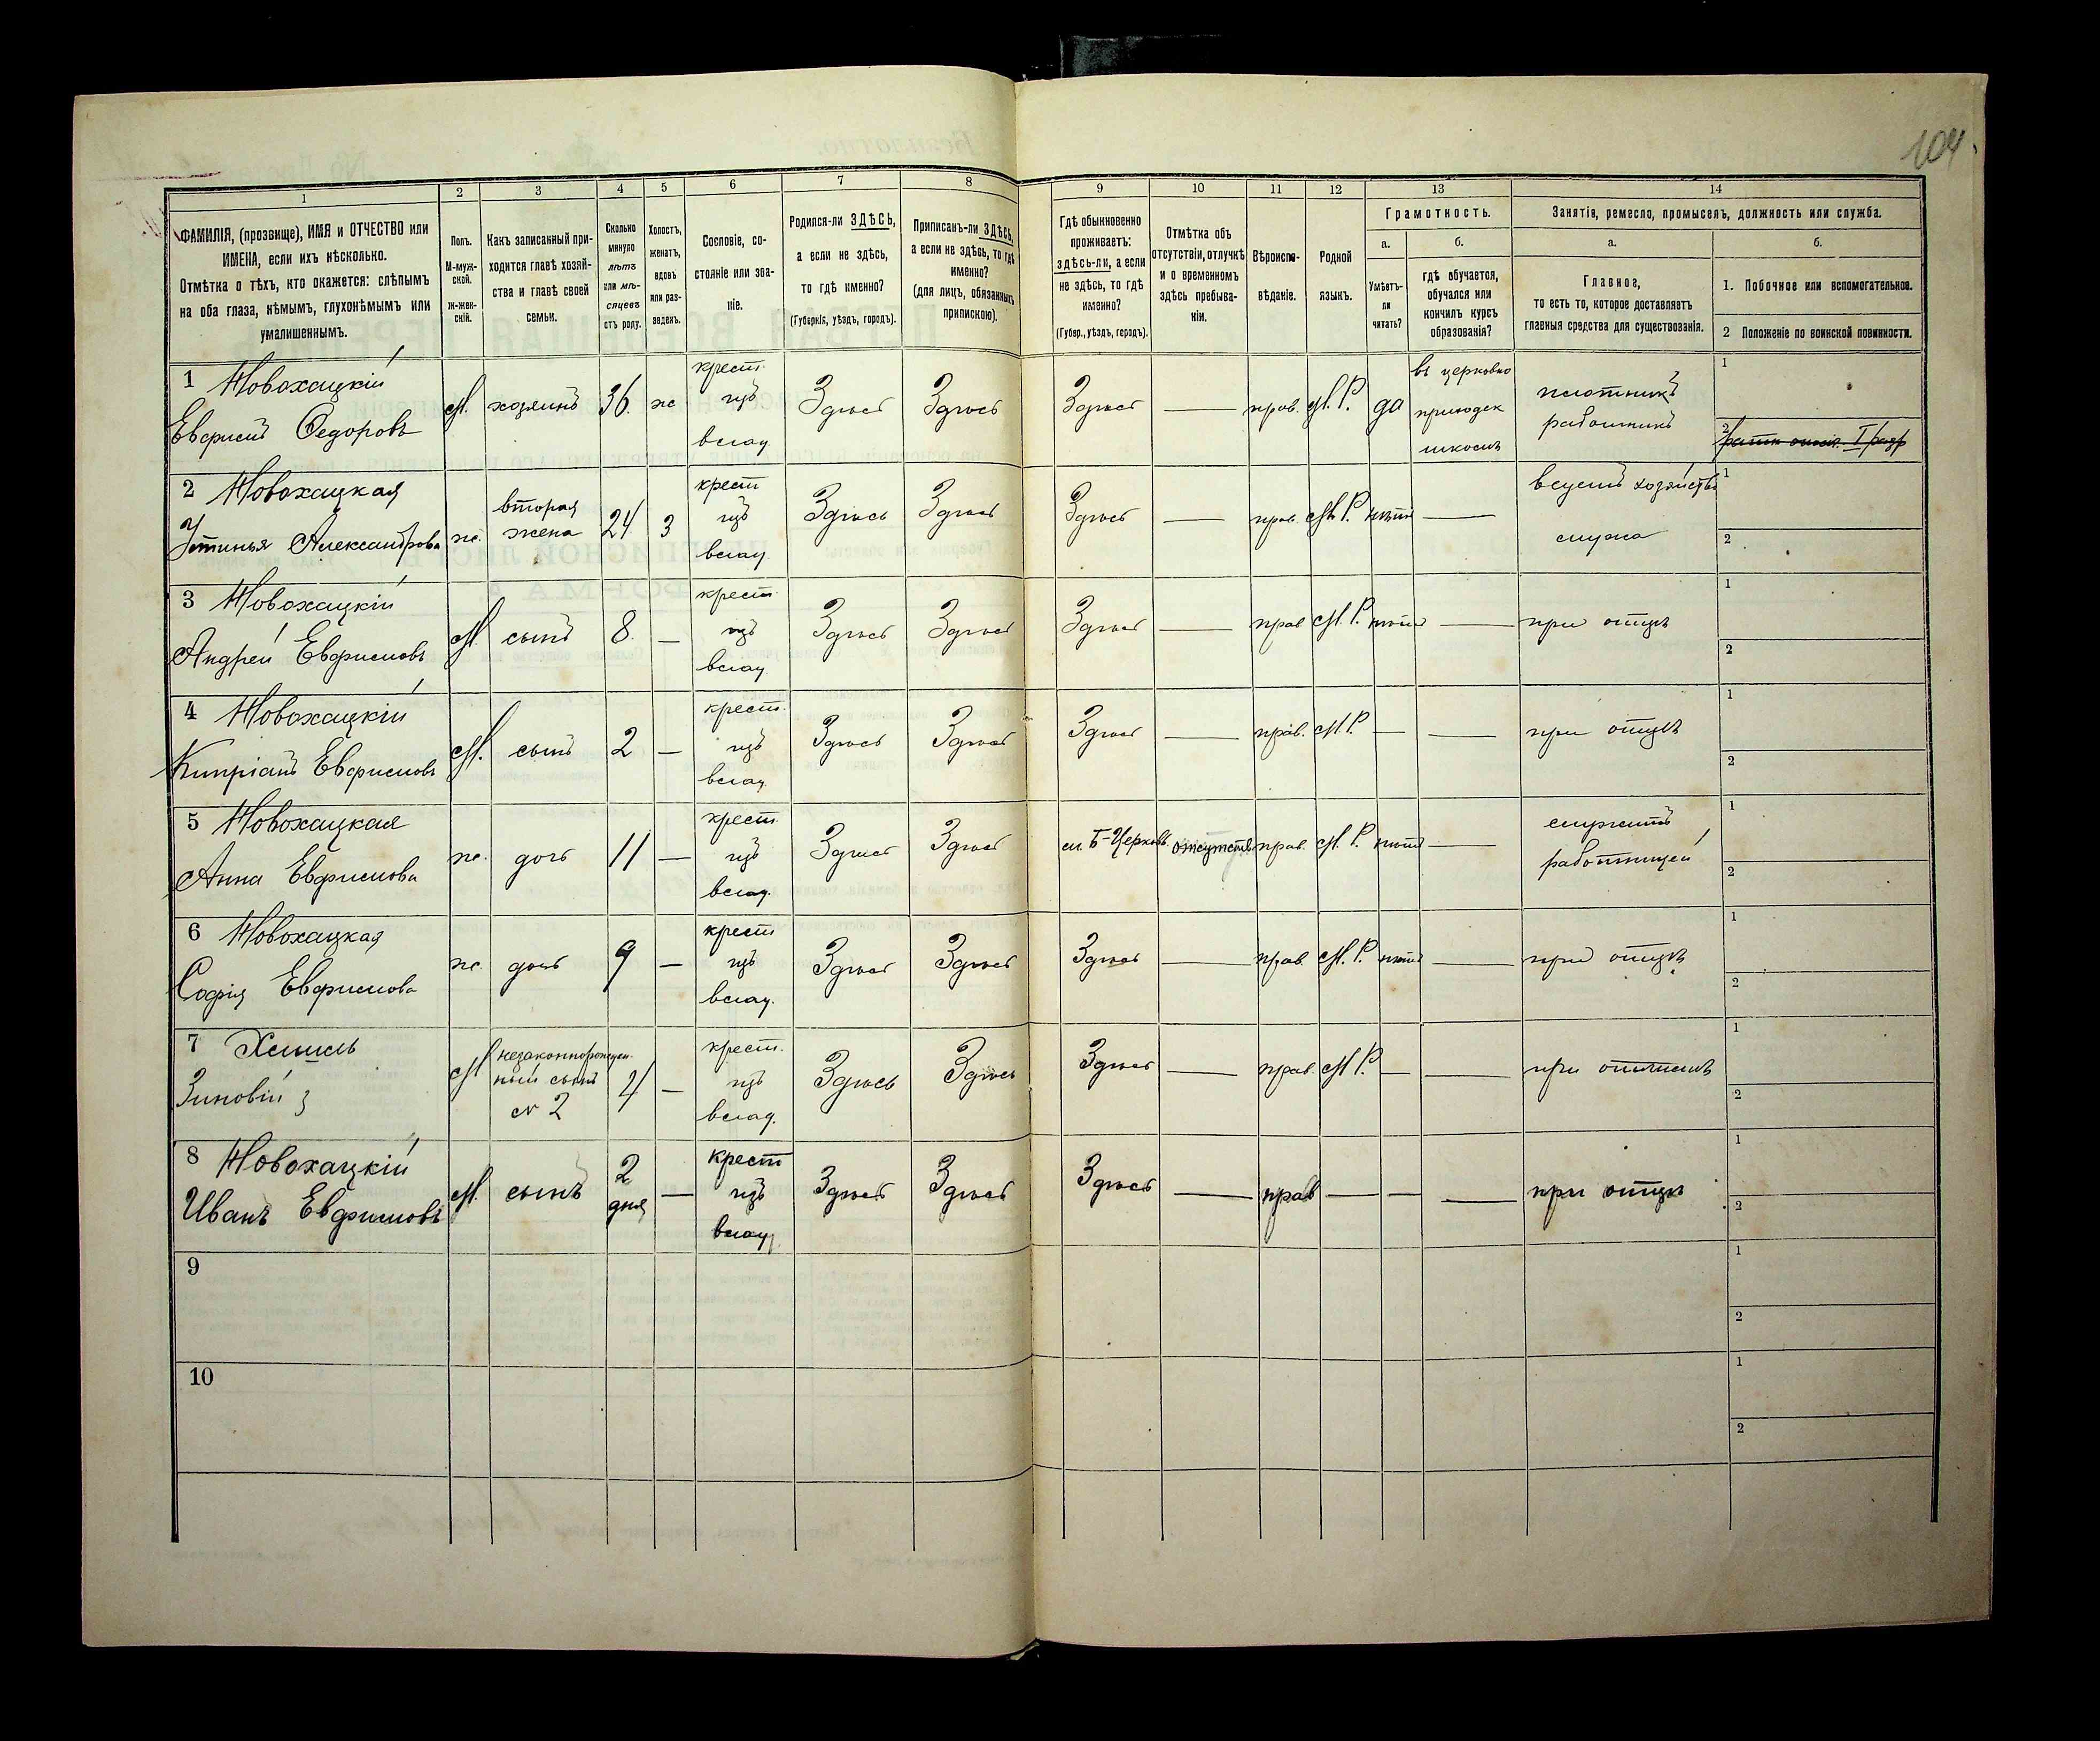 104.
1 2 3 4 5 6 7 8 9 10 11 12 13 14
ФАМИЛІЯ, (прозвище), ИМЯ и ОТЧЕСТВО или
ИМЕНА, если ихъ нѣсколько.
Отмѣтка о тѣхъ, кто окажется: слѣпымъ
на оба глаза, нѣмымъ, глухонѣмымъ или
умалишеннымъ.
Полъ.
М-муж-
ской.
ж-жен-
скій.
Какъ записанный при-
ходится главѣ хозяй-
ства и главѣ своей
семьи.
Сколько
минуло
лѣтъ
или мѣ-
сяцевъ
отъ роду.
Холостъ,
женатъ,
вдовъ
или раз-
веденъ.
Сословіе, со-
стояніе или зва-
ніе.
Родился-ли ЗДѢСЬ,
а если не здѣсь,
то гдѣ именно?
(Губернія, уѣздъ, городъ).
Приписанъ-ли ЗДѢСЬ,
а если не здѣсь, то гдѣ
именно?
(для лицъ, обязанныхъ
припискою).
Гдѣ обыкновенно
проживаетъ:
здѣсь-ли, а если
не здѣсь, то гдѣ
именно?
(Губер., уѣздъ, городъ).
Отмѣтка объ
отсутствіи, отлучкѣ
и о временномъ
здѣсь пребыва-
ніи.
Вѣроиспо-
вѣданіе.
Родной
языкъ.
Грамотность.
а.
Умѣетъ-
ли
читать?
б.
гдѣ обучается,
обучался или
кончилъ курсъ
образованія?
Занятія, ремесло, промыселъ, должность или служба.
а.
Главное,
то есть то, которое доставляетъ
главныя средства для существованія.
б.
1. Побочное или вспомогательное.
2 Положеніе по воинской повинности.
1 Новохацкій
Евфимій Федоровъ
М. хозяинъ 36. ж
крест.
изъ
влад
Здѣсь Здѣсь Здѣсь — прав. М. Р. да
въ церковно
приходск
школѣ
плотникъ
работникъ
1
2 ратник опол. I разр
2 Новохацкая
Устинья Александрова
ж.
вторая
жена
24 З
крест
изъ
влад
Здѣсь Здѣсь Здѣсь — прав. М. Р. нѣтъ —
хозяйств
мужа
1
2
3 Новохацкій
Андрей Евфимовъ
М. сынъ 8. —
крест
изъ
влад
Здѣсь Здѣсь Здѣсь — прав М. Р. нѣтъ — при отцѣ
1
2
4 Новохацкій
Кипріанъ Евфимовъ
М. сынъ 2 —
крест.
изъ
влад.
Здѣсь Здѣсь Здѣсь — прав. М. Р. — — при отцѣ
1
2
5 Новохацкая
Анна Евфимова
ж. дочь 11 —
крест.
изъ
влад.
Здѣсь Здѣсь м. Б-Церковь отсутств прав. М. Р. нѣтъ —
служитъ
работницей
1
2
6 Новохацкая
Софія Евфимова
ж. дочь 9 —
крест
изъ
влад.
Здѣсь Здѣсь Здѣсь — прав. М. Р. нѣтъ — при отцѣ
1
2
7
Зиновій
М
незаконнорожден-
ный сынъ
№ 2
4 —
крест.
изъ
влад.
Здѣсь Здѣсь Здѣсь — прав. М. Р. — — при отчимѣ
1
2
8 Новохацкій
Иванъ Евфимовъ
М. сынъ
2
дня
—
крест
изъ
влад
Здѣсь Здѣсь Здѣсь — прав — — — при отцѣ
1
2
9
1
2
10
1
2